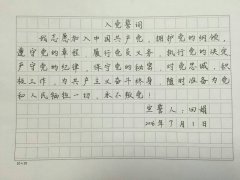 入党誓词
我志愿加入中国共产党，拥护党的纲领，
遵守党的章程，履行党员义务，执行党的决定，
严守党的纪律，保守党的秘密，对党忠诚，积
极工作，为共产主义奋斗终身，随时准备为党
和人民牺牲一切，永不叛党！
宣誓人：田娟
年7月1日
20×20